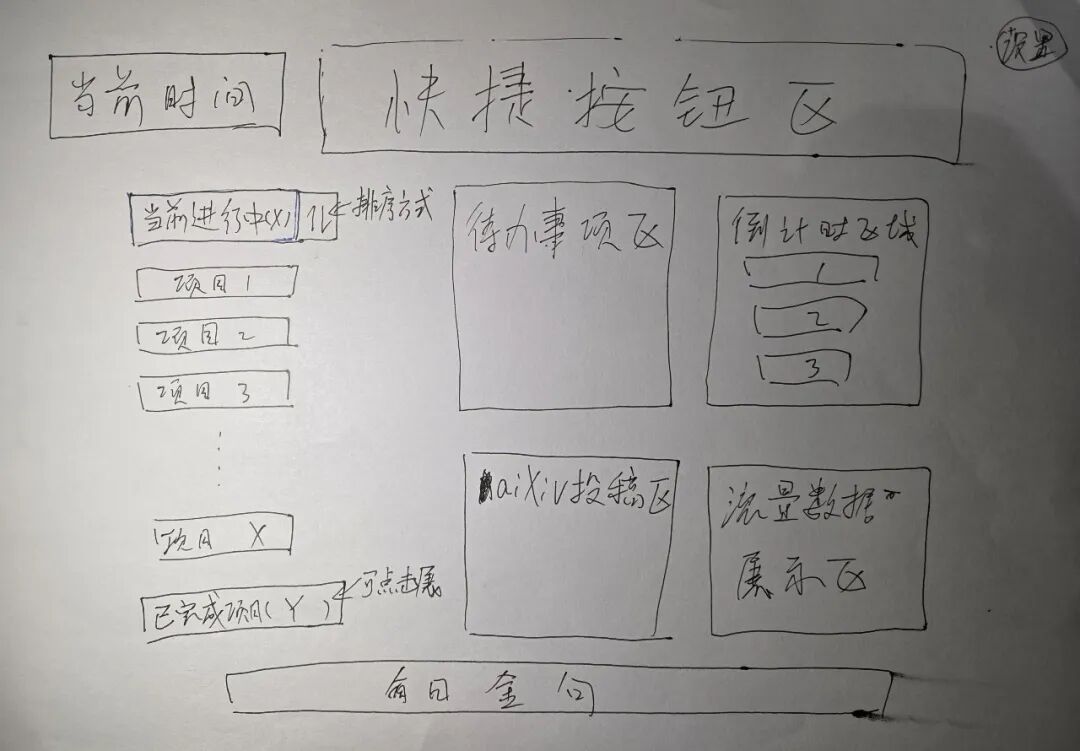 当前时间
快捷按钮区
设置
当前进行中(X) ↑↓ ←排序方式
项目 1
项目 2
项目 3
项目 X
已完成项目(Y) ←可点击展
待办事项区
倒计时区域
1
2
3
aiXiv投稿区
流量数据
展示区
每日金句